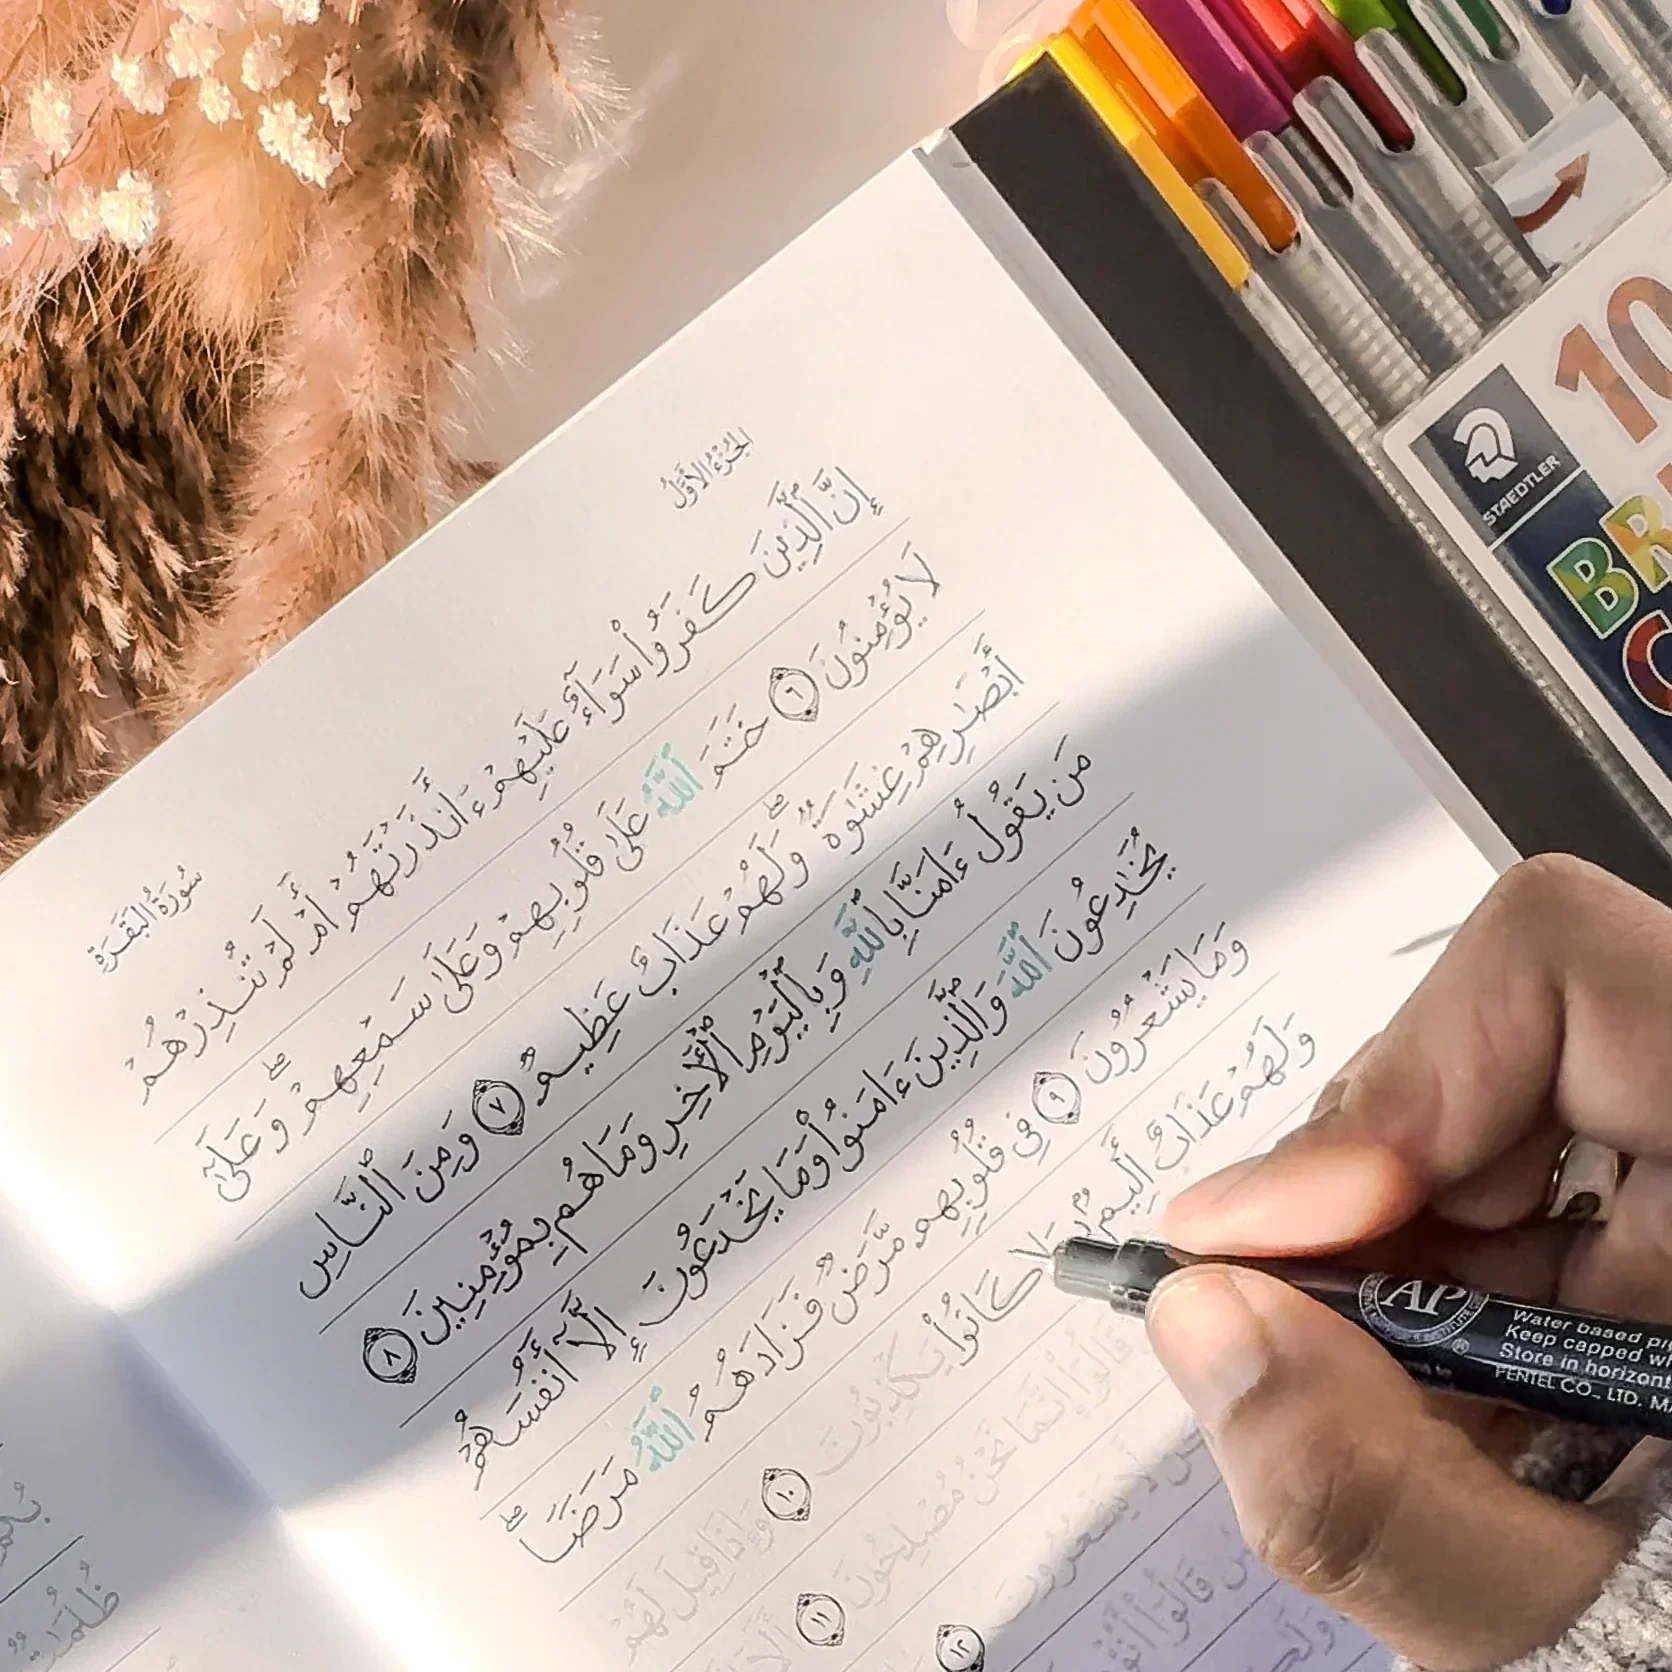 الجُزْءُ الأَوَّلُ
سُورَةُ البَقَرَةِ
إِنَّ ٱلَّذِينَ كَفَرُوا۟ سَوَآءٌ عَلَيْهِمْ ءَأَنذَرْتَهُمْ أَمْ لَمْ تُنذِرْهُمْ
لَا يُؤْمِنُونَ ٦ خَتَمَ ٱللَّهُ عَلَىٰ قُلُوبِهِمْ وَعَلَىٰ سَمْعِهِمْ ۖ وَعَلَىٰٓ
أَبْصَـٰرِهِمْ غِشَـٰوَةٌ ۖ وَلَهُمْ عَذَابٌ عَظِيمٌ ٧ وَمِنَ ٱلنَّاسِ
مَن يَقُولُ ءَامَنَّا بِٱللَّهِ وَبِٱلْيَوْمِ ٱلْـَٔاخِرِ وَمَا هُم بِمُؤْمِنِينَ ٨
يُخَـٰدِعُونَ ٱللَّهَ وَٱلَّذِينَ ءَامَنُوا۟ وَمَا يَخْدَعُونَ إِلَّآ أَنفُسَهُمْ
وَمَا يَشْعُرُونَ ٩ فِى قُلُوبِهِم مَّرَضٌ فَزَادَهُمُ ٱللَّهُ مَرَضًا ۖ
وَلَهُمْ عَذَابٌ أَلِيمٌۢ كَانُوا۟ يَكْذِبُونَ ١٠ وَإِذَا قِيلَ لَهُمْ
قَالُوٓا۟ إِنَّمَا نَحْنُ مُصْلِحُونَ ١١
لَّا يَشْعُرُونَ ١٢
STAEDTLER
10
AP
Water based
Keep capped
Store in horizont
PENTEL CO., LTD.